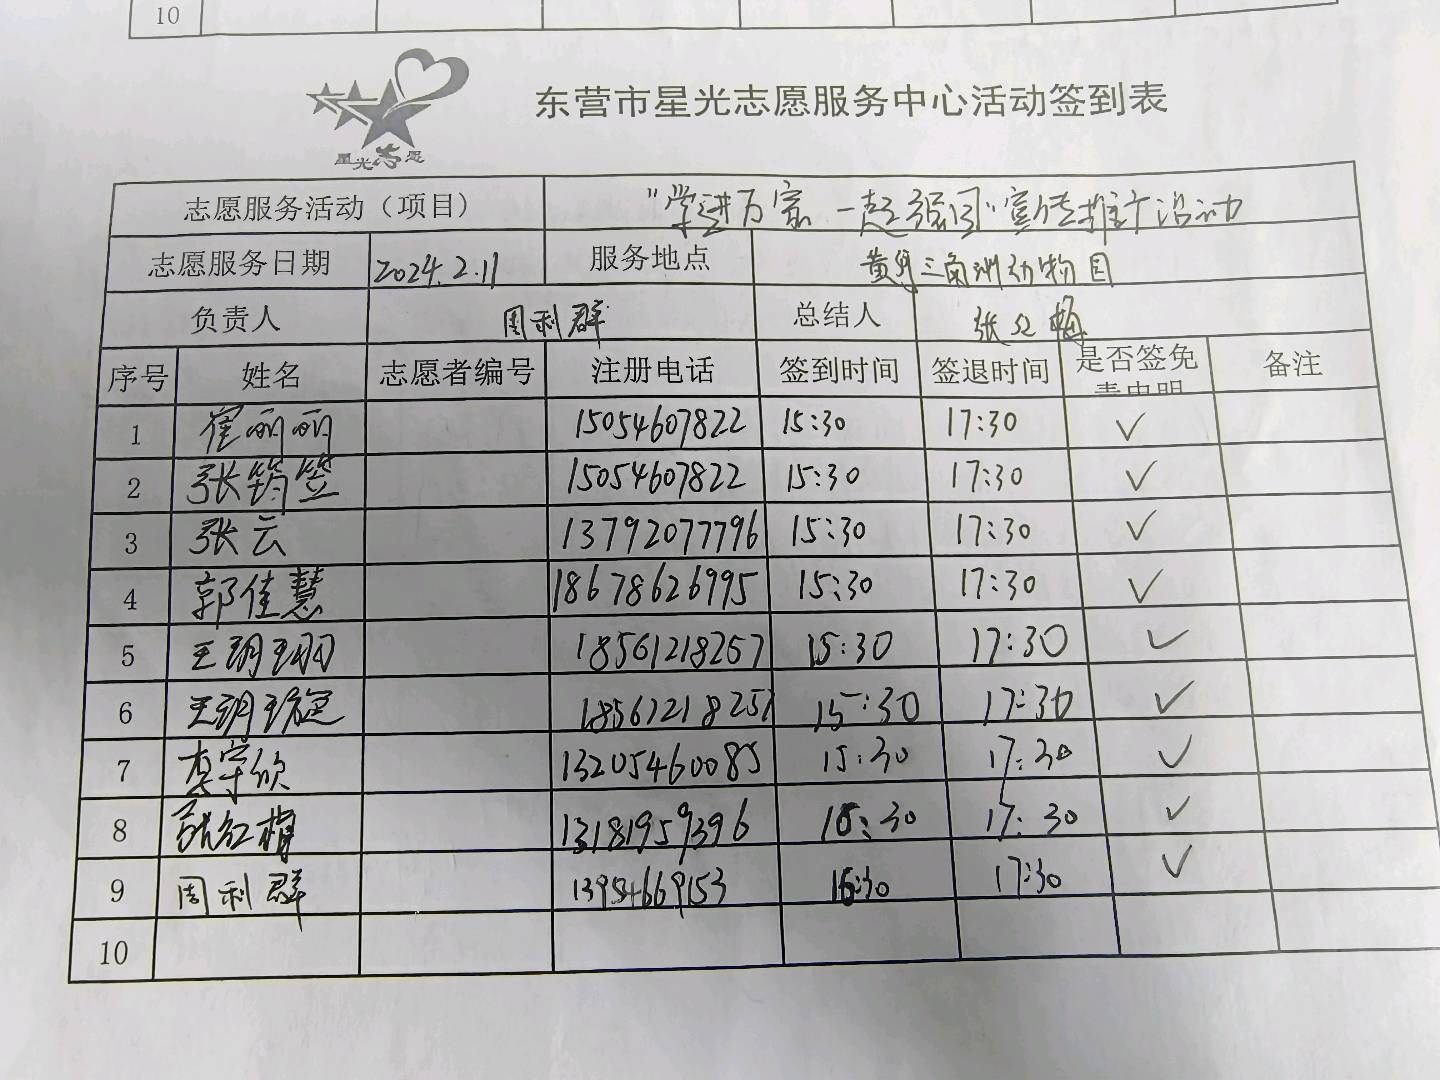 10
星光志愿
东营市星光志愿服务中心活动签到表
志愿服务活动（项目） "学进万家 一起强国"宣传推广活动
志愿服务日期 2024.2.11 服务地点 黄河三角洲动物园
负责人 周利群 总结人 张红梅
序号 姓名 志愿者编号 注册电话 签到时间 签退时间 是否签免责声明 备注
1 崔丽丽 15054607822 15:30 17:30 ✓
2 张筠笠 15054607822 15:30 17:30 ✓
3 张云 13792077796 15:30 17:30 ✓
4 郭佳慧 18678626995 15:30 17:30 ✓
5 王玥珝 18561218257 15:30 17:30 ✓
6 王玥璇 18561218257 15:30 17:30 ✓
7 13205460085 15:30 17:30 ✓
8 张红梅 13181959396 15:30 17:30 ✓
9 周利群 13954669153 15:30 17:30 ✓
10